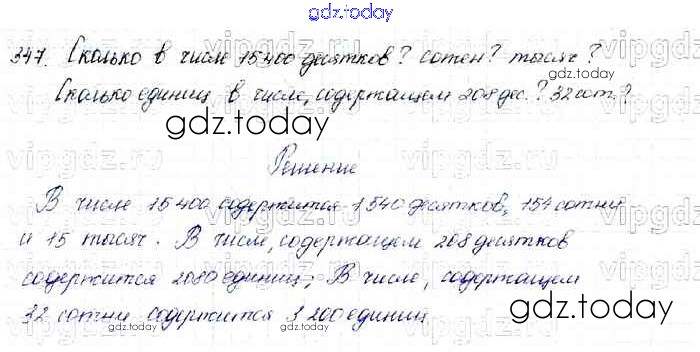 gdz.today
347. Сколько в числе 15400 десятков? сотен? тысяч?
gdz.today
Сколько единиц в числе, содержащем 208 дес.? 32 сот.?
gdz.today
gdz.today
Решение
В числе 15400 содержится 1540 десятков, 154 сотни
и 15 тысяч. В числе, содержащем 208 десятков
содержится 2080 единиц; В числе, содержащем
gdz.today
32 сотни содержится 3200 единиц
gdz.today